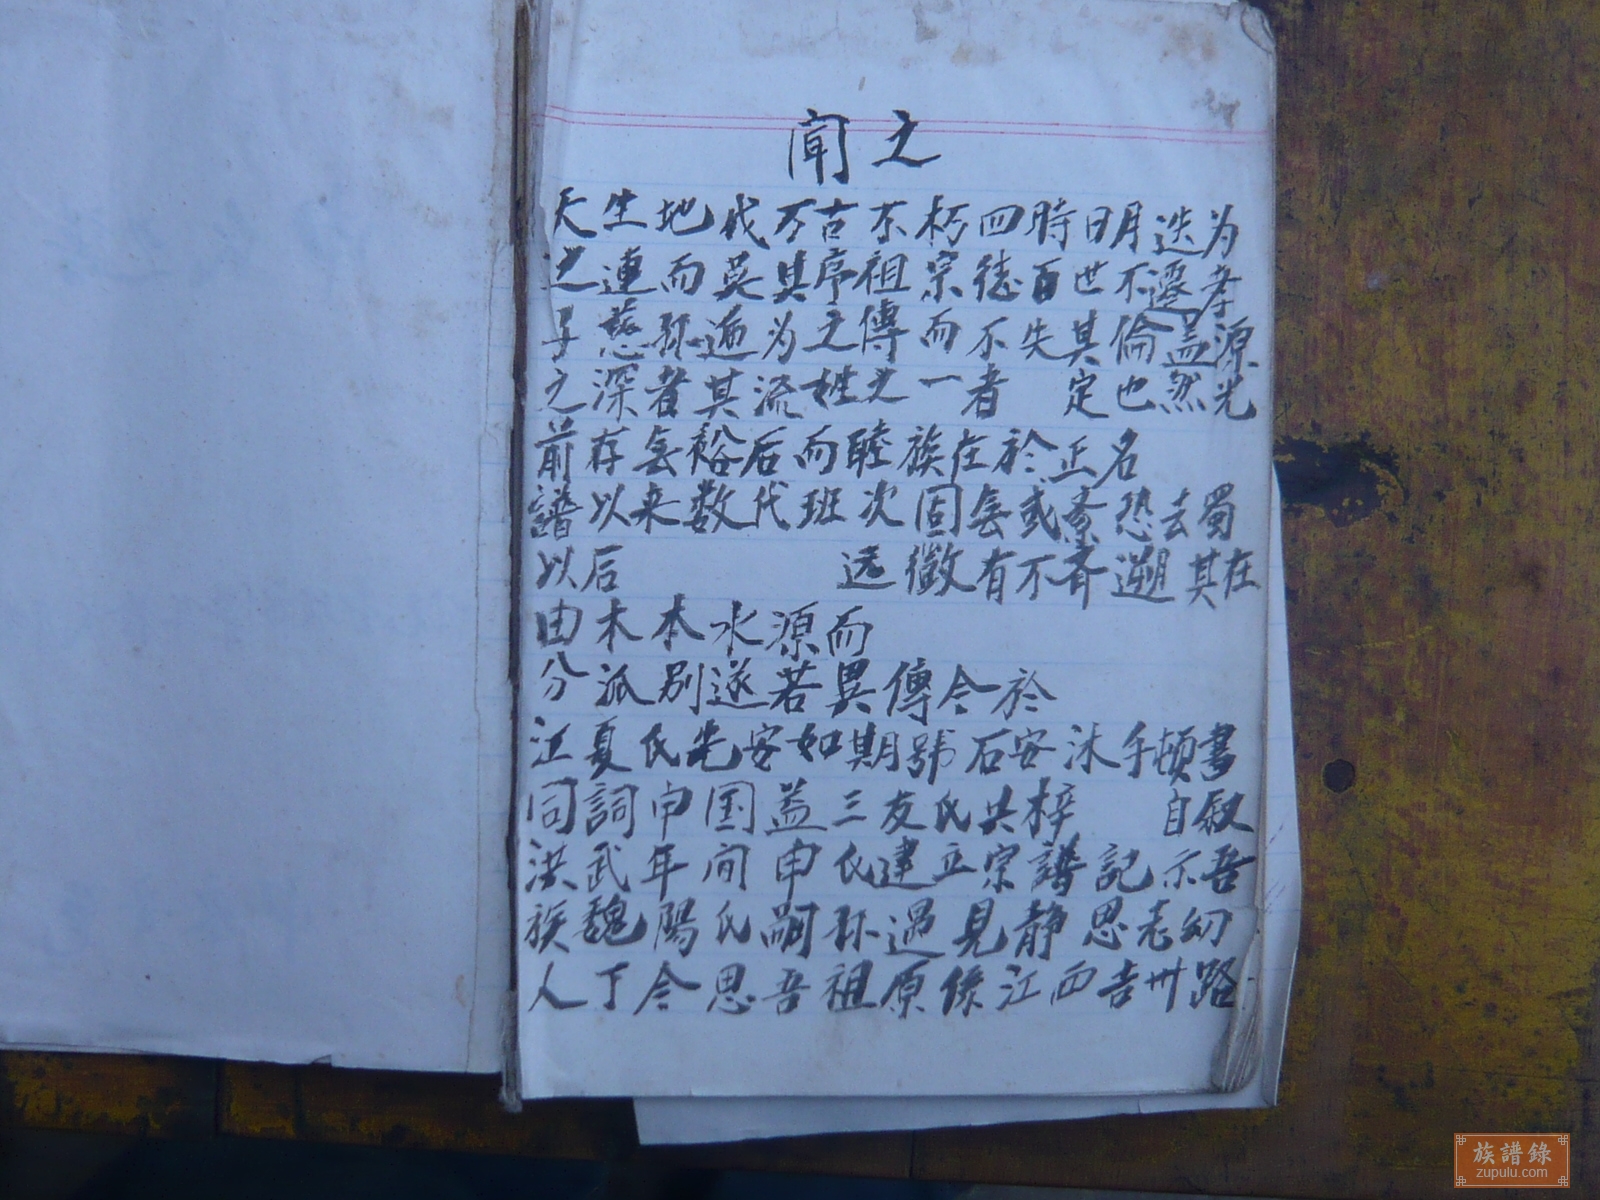 闻之
天生地成万古不朽四時日月迭为
之連而莫其序祖宗德百世不遷孝
子慈孙遍为之傳而不失其倫盖源
之深者其流姓之一者 定也然光
前存無裕后而睦族在於正名
譜以来数代班次固無或紊恐去蜀
以后 远徵有不齐遡其在
由木本水源而
分派别遂若異傳今於
江夏氏先安如期號石安沐手頓書
同詞申国益三友氏共梓 自叙
洪武年间申氏建立宗譜記示吾
族魏陽氏嗣孙遇見静思老幼
人丁今思吾祖原係江西吉州路
族譜錄
zupulu.com